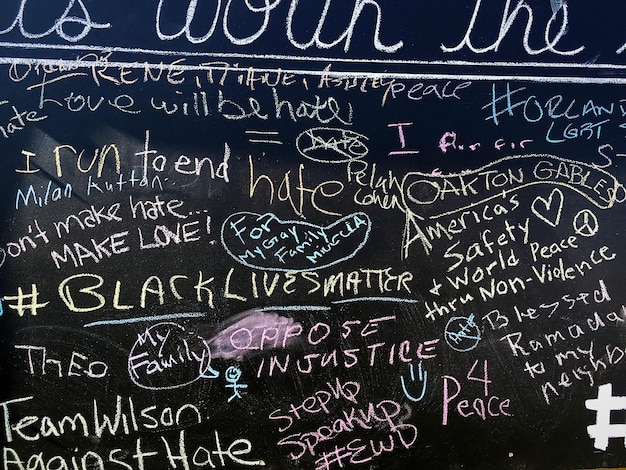 It's worth the
RENE, DIANE, Ashley peace
Love will be hate!
hate
=
hate
#ORLAN
LGBT
I run to end
hate
I run for
Milan Kuttan
Dylan
Cohen
OAKTON GABLES
Don't make hate...
MAKE LOVE!
For
My Gray
Family
America's
Safety
& World Peace
thru Non-Violence
#BLACK LIVES MATTER
THEO
My
Family
OPPOSE
INJUSTICE
Blessed
Ramada
to my
neighb
4
Peace
Team Wilson
Against Hate
Step Up
Speak Up
#EWD
#